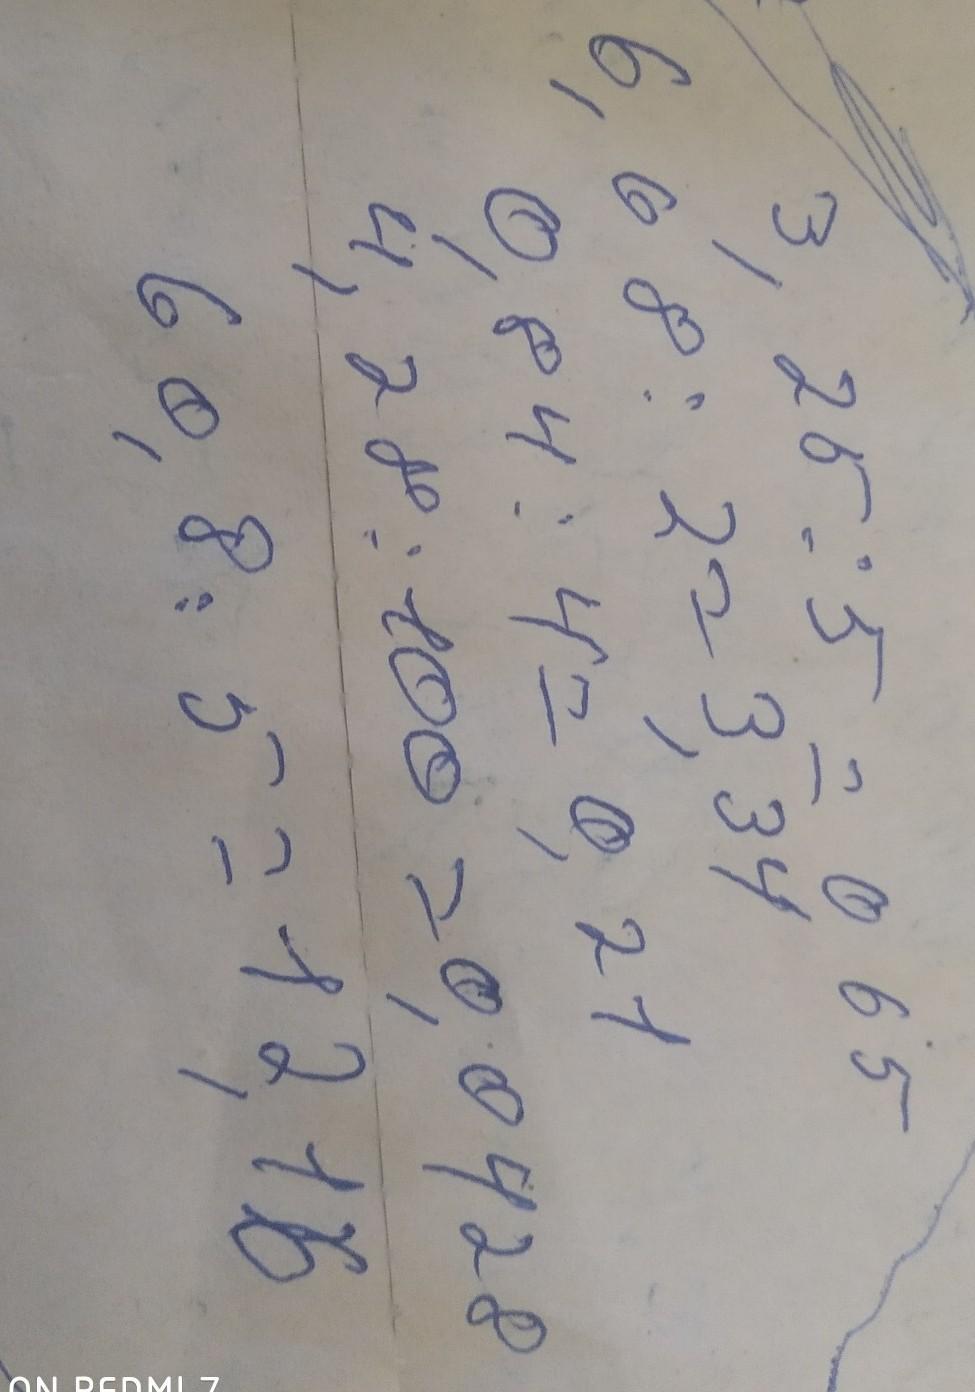 3,25:5=0 65
6,68:2=3,34
0,84:4=0,21
4,28:100=0,0428
60,8:5=12,16
ON REDMI 7